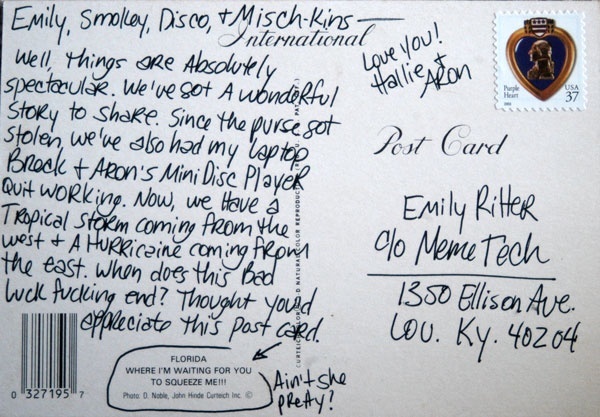 Emily, Smokey, Disco, + Misch-Kins —
International
Well, things are Absolutely
spectacular. We've got A wonderful
story to share. Since the purse got
stolen, we've also had my laptop
Break + Aron's MiniDisc Player
Quit working. Now, we have a
Tropical Storm coming from the
west + A Hurricaine coming from
the east. When does this Bad
luck fucking end? Thought you'd
appreciate this post card.
Love you!
Hallie +
Aron
Purple
Heart
USA
37
Post Card
Emily Ritter
c/o MemeTech
1350 Ellison Ave.
Lou. Ky. 40204
FLORIDA
WHERE I'M WAITING FOR YOU
TO SQUEEZE ME!!!
Photo: D. Noble, John Hinde Curteich Inc. ©
Ain't she
pretty?
0 327195 7